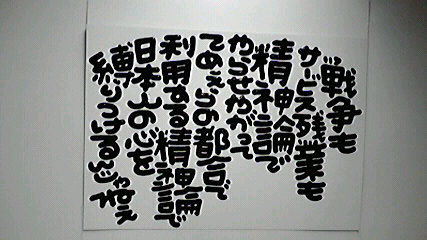 戦争も
サービス残業も
精神論で
やらせやがって
てめぇらの都合で
利用する精神論で
日本人の心を
縛りつけるんじゃねえ